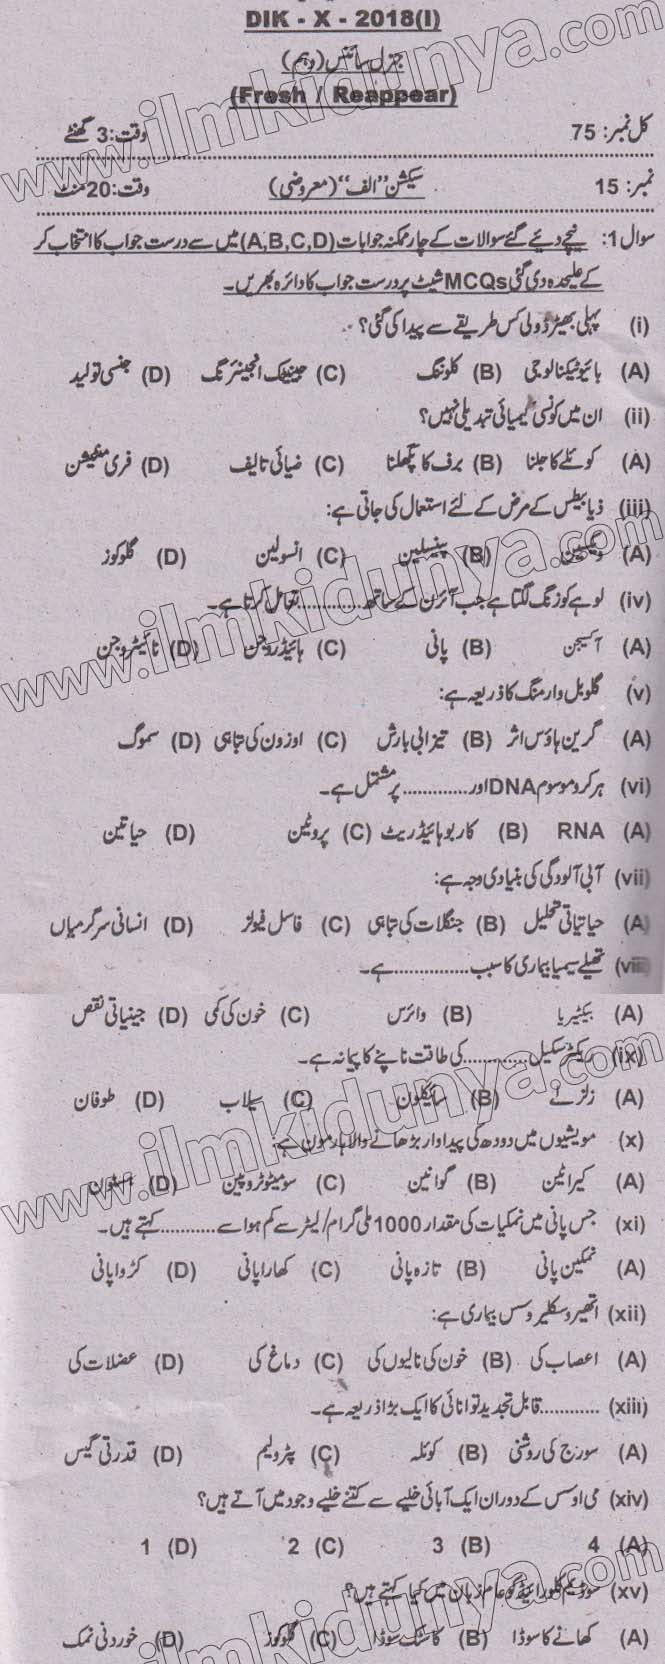 DIK - X - 2018(I)
جنرل سائنس (دہم)
(Fresh / Reappear)
کل نمبر: 75 وقت: 3 گھنٹے
نمبر: 15 سیکشن "الف" (معروضی) وقت: 20 منٹ
سوال 1: نیچے دیئے گئے سوالات کے چار ممکنہ جوابات (A,B,C,D) میں سے درست جواب کا انتخاب کر
کے علیحدہ دی گئی MCQs شیٹ پر درست جواب کا دائرہ بھریں۔
(i) پہلی بھیڑ ڈولی کس طریقے سے پیدا کی گئی؟
(A) بائیوٹیکنالوجی (B) کلوننگ (C) جینیٹک انجینئرنگ (D) جنسی تولید
(ii) ان میں کونسی کیمیائی تبدیلی نہیں؟
(A) کوئلے کا جلنا (B) برف کا پگھلنا (C) ضیائی تالیف (D) فرمنٹیشن
(iii) ذیابیطس کے مرض کے لئے استعمال کی جاتی ہے:
(A) ویکسین (B) پینسلین (C) انسولین (D) گلوکوز
(iv) لوہے کو زنگ لگتا ہے جب آئرن کے ساتھ............تعامل کرتا ہے۔
(A) آکسیجن (B) پانی (C) ہائیڈروجن (D) نائیٹروجن
(v) گلوبل وارمنگ کا ذریعہ ہے:
(A) گرین ہاؤس اثر (B) تیزابی بارش (C) اوزون کی تباہی (D) سموگ
(vi) ہر کروموسوم DNA اور............پر مشتمل ہے۔
(A) RNA (B) کاربوہائیڈریٹ (C) پروٹین (D) حیاتین
(vii) آبی آلودگی کی بنیادی وجہ ہے:
(A) حیاتیاتی تحلیل (B) جنگلات کی تباہی (C) فاسل فیولز (D) انسانی سرگرمیاں
(viii) تھیلے سیمیا بیماری کا سبب............ہے۔
(A) بیکٹیریا (B) وائرس (C) خون کی کمی (D) جینیاتی نقص
(ix) ریکٹر سکیل............کی طاقت ناپنے کا پیمانہ ہے۔
(A) زلزلے (B) سائیکلون (C) سیلاب (D) طوفان
(x) مویشیوں میں دودھ کی پیداوار بڑھانے والا ہارمون ہے:
(A) کیراٹین (B) گوانین (C) سومیٹوٹروپین (D) ہسٹون
(xi) جس پانی میں نمکیات کی مقدار 1000 ملی گرام/لیٹر سے کم ہو اسے............کہتے ہیں۔
(A) نمکین پانی (B) تازہ پانی (C) کھارا پانی (D) کڑوا پانی
(xii) اتھیروسکلیروسس بیماری ہے:
(A) اعصاب کی (B) خون کی نالیوں کی (C) دماغ کی (D) عضلات کی
(xiii) ............قابل تجدید توانائی کا ایک بڑا ذریعہ ہے۔
(A) سورج کی روشنی (B) کوئلہ (C) پٹرولیم (D) قدرتی گیس
(xiv) می اوسس کے دوران ایک آبائی خلیے سے کتنے خلیے وجود میں آتے ہیں؟
(A) 4 (B) 3 (C) 2 (D) 1
(xv) سوڈیم کلورائیڈ کو عام زبان میں کیا کہتے ہیں؟
(A) کھانے کا سوڈا (B) کاسٹک سوڈا (C) گلوکوز (D) خوردنی نمک
www.ilmkidunya.com
www.ilmkidunya.com
www.ilmkidunya.com
www.ilmkidunya.com